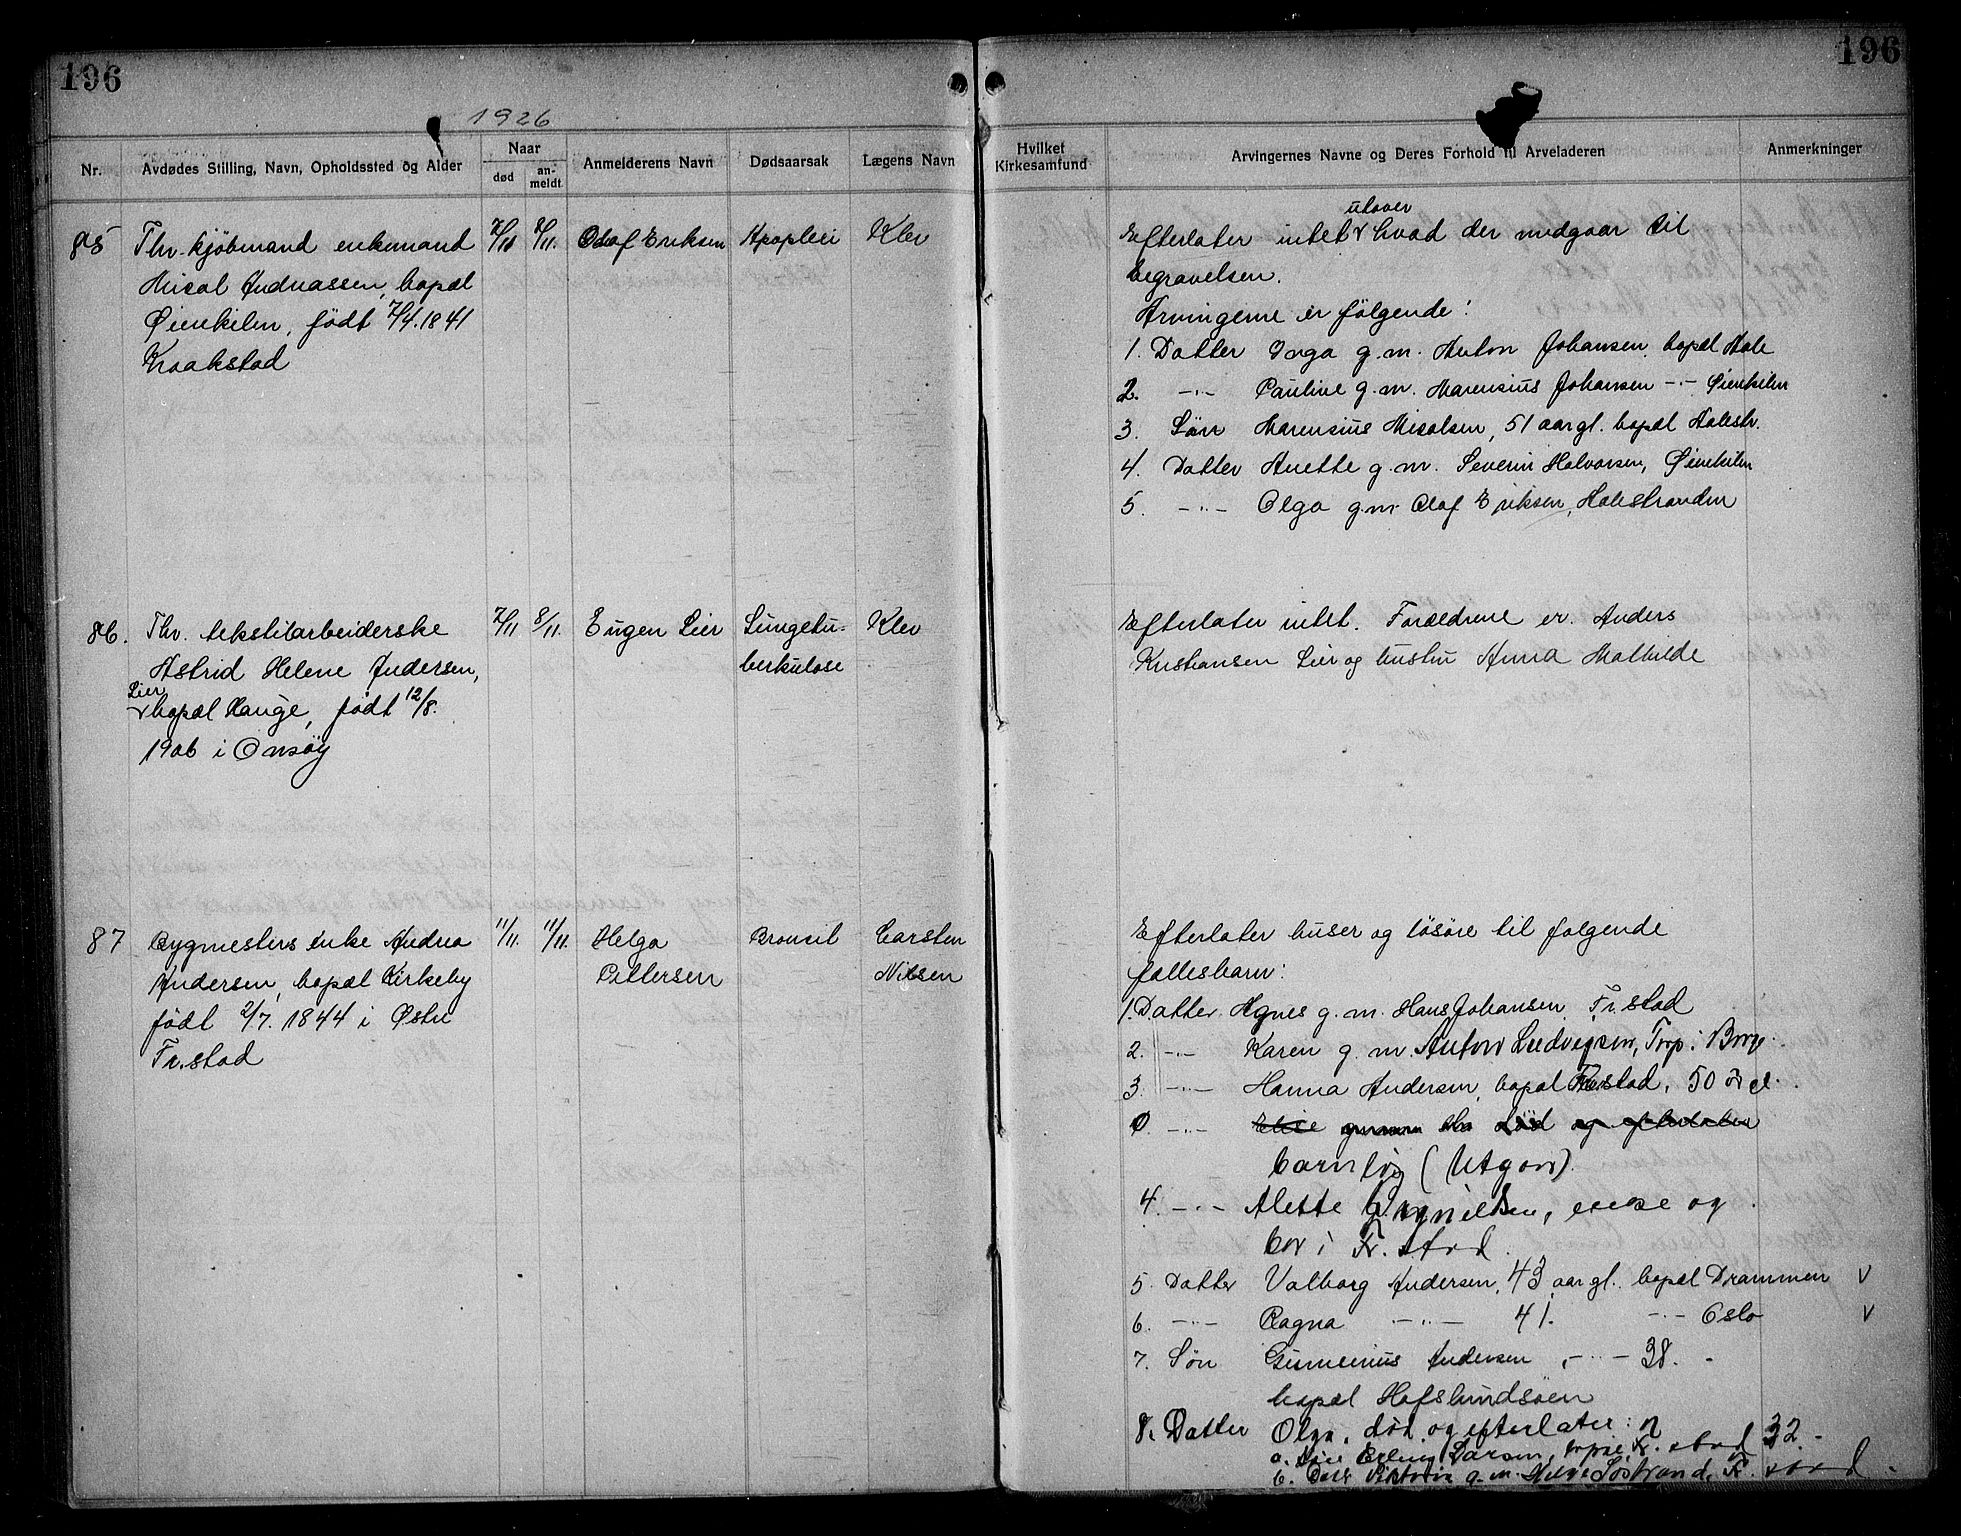 196
196
1926
Nr.
Avdødes Stilling, Navn, Opholdssted og Alder
Naar
død
an-
meldt
Anmelderens Navn
Dødsaarsak
Lægens Navn
Hvilket
Kirkesamfund
Arvingernes Navne og Deres Forhold til Arveladeren
Anmerkninger
85
Fhv. kjøbmand enkemand
Misal Andreassen, bopæl
Øienkilen, født 7/4.1841
Kraakstad
7/11
8/11.
Olaf Eriksen
Apoplexi
Klev
utover
Efterlater intet hvad der medgaar til
begravelsen.
Arvingerne er følgende:
1. Datter Inga g.m. Anton Johansen, bopæl Hale
2. -"- Pauline g.m. Marensius Johansen -"- Øienkilen
3. Søn Marensius Misalsen, 51 aar gl. bopæl Halestr.
4. Datter Anette g.m. Severin Halvorsen, Øienkilen
5. -"- Olga g.m. Olaf Eriksen, Halestranden
86.
Fhv. tekstilarbeiderske
Astrid Helene Andersen,
Lier
bopæl Hauge, født 12/8.
1906 i Onsøy
7/11
8/11.
Eugen Lier
Lungetu-
berkulose
Klev
Efterlater intet. Forældrene er Anders
Kristiansen Lier og hustru Anna Mathilde
87
Bygmesters enke Andrea
Andersen, bopæl Kirkeby
født 2/7. 1844 i Østre
Fr.stad
11/11.
11/11.
Helga
Pettersen
Bronkit
Carsten
Nilsen
Efterlater huser og løsøre til følgende
fællesbarn:
1. Datter Agnes g.m. Hans Johansen, Fr.stad
2. -"- Karen g.m. Anton Ludvigsen, Torp i Borge.
3. -"- Hanna Andersen, bopæl Fr.stad, 50 år gl.
-"- Elise død og efterlater
barnløs (Utgaar).
4. -"- Alette enke og
bor i Fr.stad.
5. Datter Valborg Andersen, 43 aar gl. bopæl Drammen V
6. -"- Ragna -"- 41. -"- Oslo V
7. Søn Andersen, -"- 38.
bopæl Hafslundsøen
8. Datter Olga, død og efterlater:
a. Søn Erling Larsen, bopæl Fr.stad 32.
b. Datt g.m. Sostrand, Fr.stad.